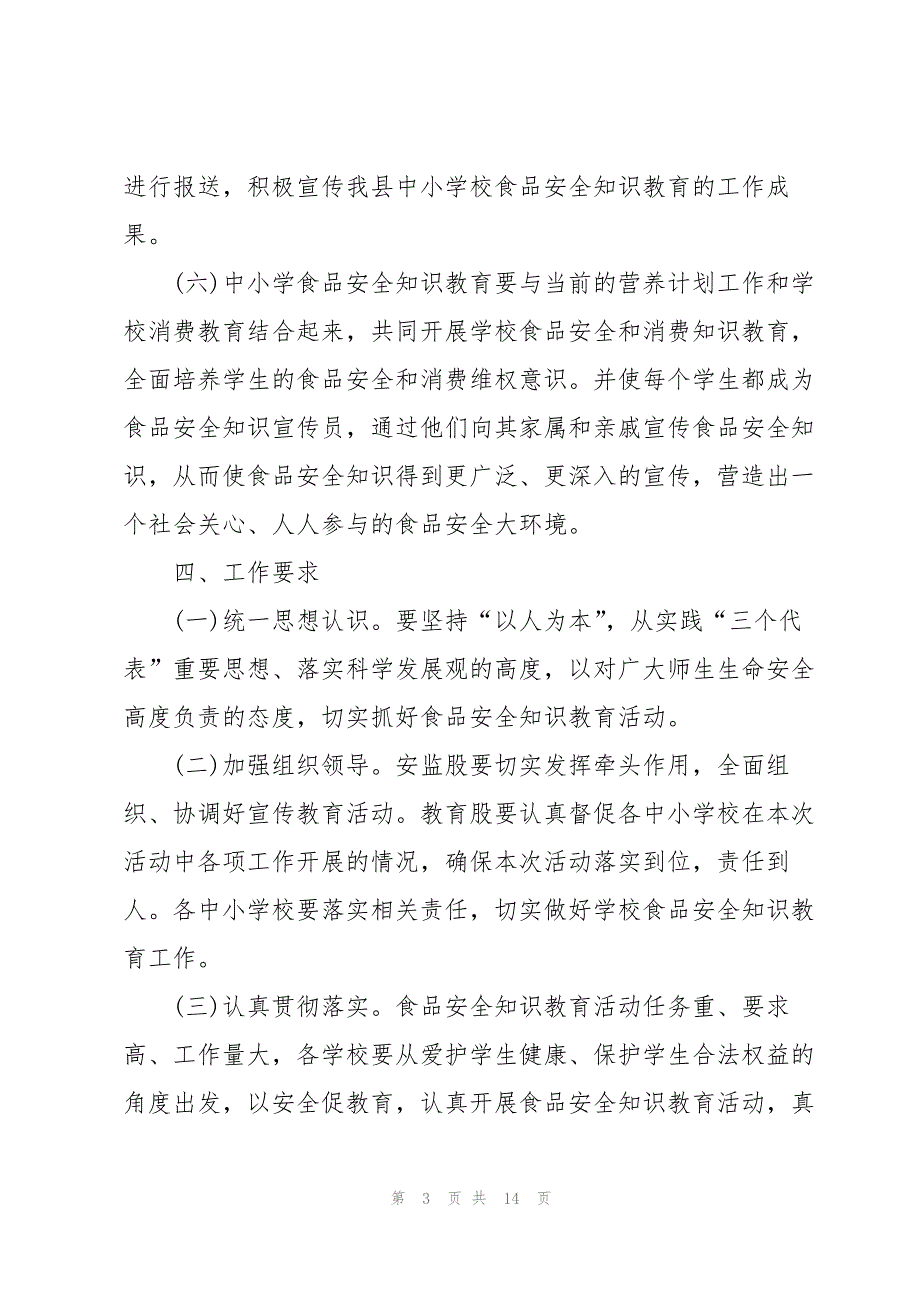 进行报送，积极宣传我县中小学校食品安全知识教育的工作成
果。
(六)中小学食品安全知识教育要与当前的营养计划工作和学
校消费教育结合起来，共同开展学校食品安全和消费知识教育，
全面培养学生的食品安全和消费维权意识。并使每个学生都成为
食品安全知识宣传员，通过他们向其家属和亲戚宣传食品安全知
识，从而使食品安全知识得到更广泛、更深入的宣传，营造出一
个社会关心、人人参与的食品安全大环境。
四、工作要求
(一)统一思想认识。要坚持“以人为本”，从实践“三个代
表”重要思想、落实科学发展观的高度，以对广大师生生命安全
高度负责的态度，切实抓好食品安全知识教育活动。
(二)加强组织领导。安监股要切实发挥牵头作用，全面组
织、协调好宣传教育活动。教育股要认真督促各中小学校在本次
活动中各项工作开展的情况，确保本次活动落实到位，责任到
人。各中小学校要落实相关责任，切实做好学校食品安全知识教
育工作。
(三)认真贯彻落实。食品安全知识教育活动任务重、要求
高、工作量大，各学校要从爱护学生健康、保护学生合法权益的
角度出发，以安全促教育，认真开展食品安全知识教育活动，真
第 3 页 共 14 页